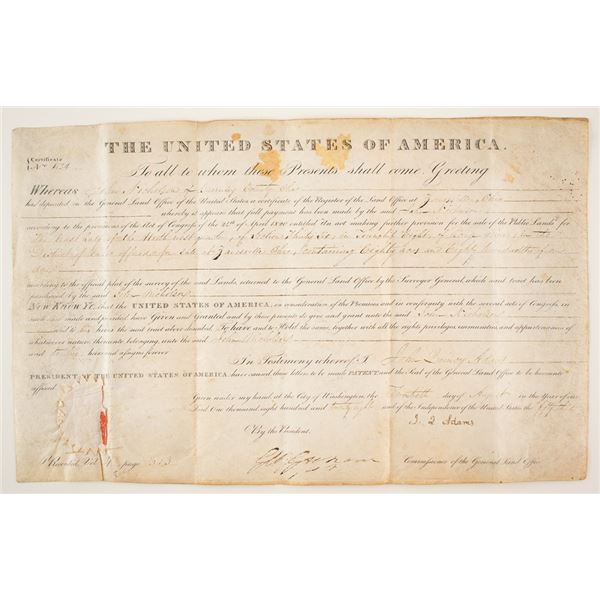 THE UNITED STATES OF AMERICA.
Certificate
To all to whom these Presents shall come Greeting
Whereas John Nicholson of County Ohio
has deposited in the General Land Office of the United States a certificate of the Register of the Land Office at Zanesville Ohio
whereby it appears that full payment has been made by the said
according to the provisions of the Act of Congress of the 24th of April 1820 entitled An act making further provision for the sale of the Public Lands for
The half of the North West quarter of Section Thirty in Township Eight of Range
District of Lands offered for sale at Zanesville Ohio, containing Eighty acres and Eighty hundredths of an
acre
according to the official plat of the survey of the said Lands, returned to the General Land Office by the Surveyor General, which said tract has been
purchased by the said John Nicholson
NOW KNOW YE, that the UNITED STATES OF AMERICA, in consideration of the Premises and in conformity with the several acts of Congress, in
such case made and provided, have Given and Granted and by these presents do give and grant unto the said John Nicholson
and to his heirs the said tract above described. To have and to Hold the same, together with all the rights, privileges, immunities, and appurtenances of
whatsoever nature, thereunto belonging, unto the said John Nicholson
and to his heirs and assigns forever
In Testimony whereof I, John Quincy Adams
PRESIDENT OF THE UNITED STATES OF AMERICA, have caused these letters to be made PATENT and the Seal of the General Land Office to be hereunto
affixed.
Given under my hand at the City of Washington, the Twentieth day of August in the Year of our
Lord One thousand eight hundred and twenty eight and of the Independence of the United States the fifty third
J. Q Adams
By the President.
Geo Graham
Commissioner of the General Land Office
Recorded, Vol. page 313